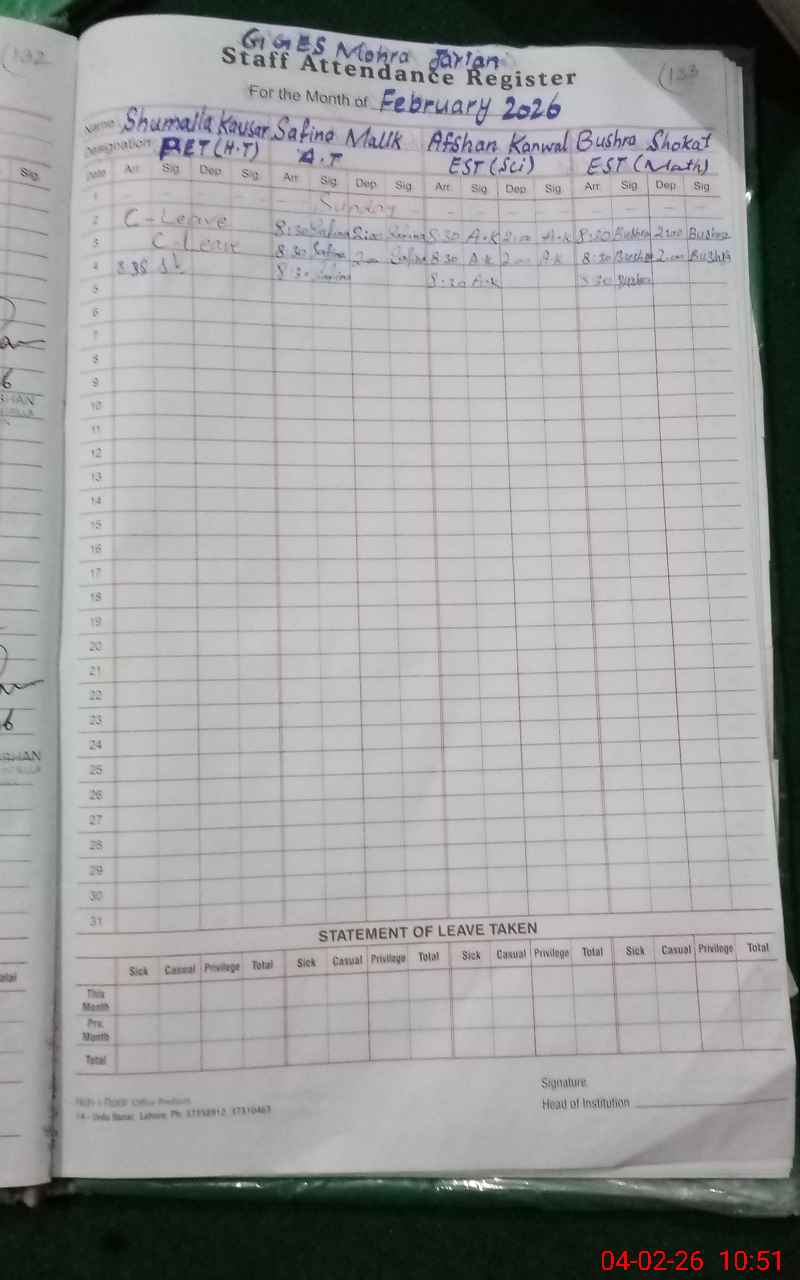 (132
(133
GGES Mohra Jarian
Staff Attendance Register
For the Month of February 2026
Name Shumaila Kausar Safina Malik Afshan Kanwal Bushra Shokat
Designation PET (H.T) A.T EST (Sci) EST (Math)
Sig.
Date Arr. Sig. Dep. Sig. Arr. Sig. Dep. Sig. Arr. Sig. Dep. Sig. Arr. Sig. Dep. Sig.
1 Sunday
2 C-Leave 8:30 Safina 2:00 Safina 8:30 A.K 2:00 A.K 8:30 Bushra 2:00 Bushra
3 C-Leave 8:30 Safina 2:00 Safina 8:30 A.K 2:00 A.K 8:30 Bushra 2:00 Bushra
4 8:30 Safina 8:30 A.K 8:30 Bushra
5
6
7
8
9
10
11
12
13
14
15
16
17
18
19
20
21
22
23
24
25
26
27
28
29
30
31
STATEMENT OF LEAVE TAKEN
Sick Casual Privilege Total Sick Casual Privilege Total Sick Casual Privilege Total Sick Casual Privilege Total
This Month
Prv. Month
Total
Signature
Head of Institution
14 - Urdu Bazar, Lahore. Ph:
04-02-26 10:51